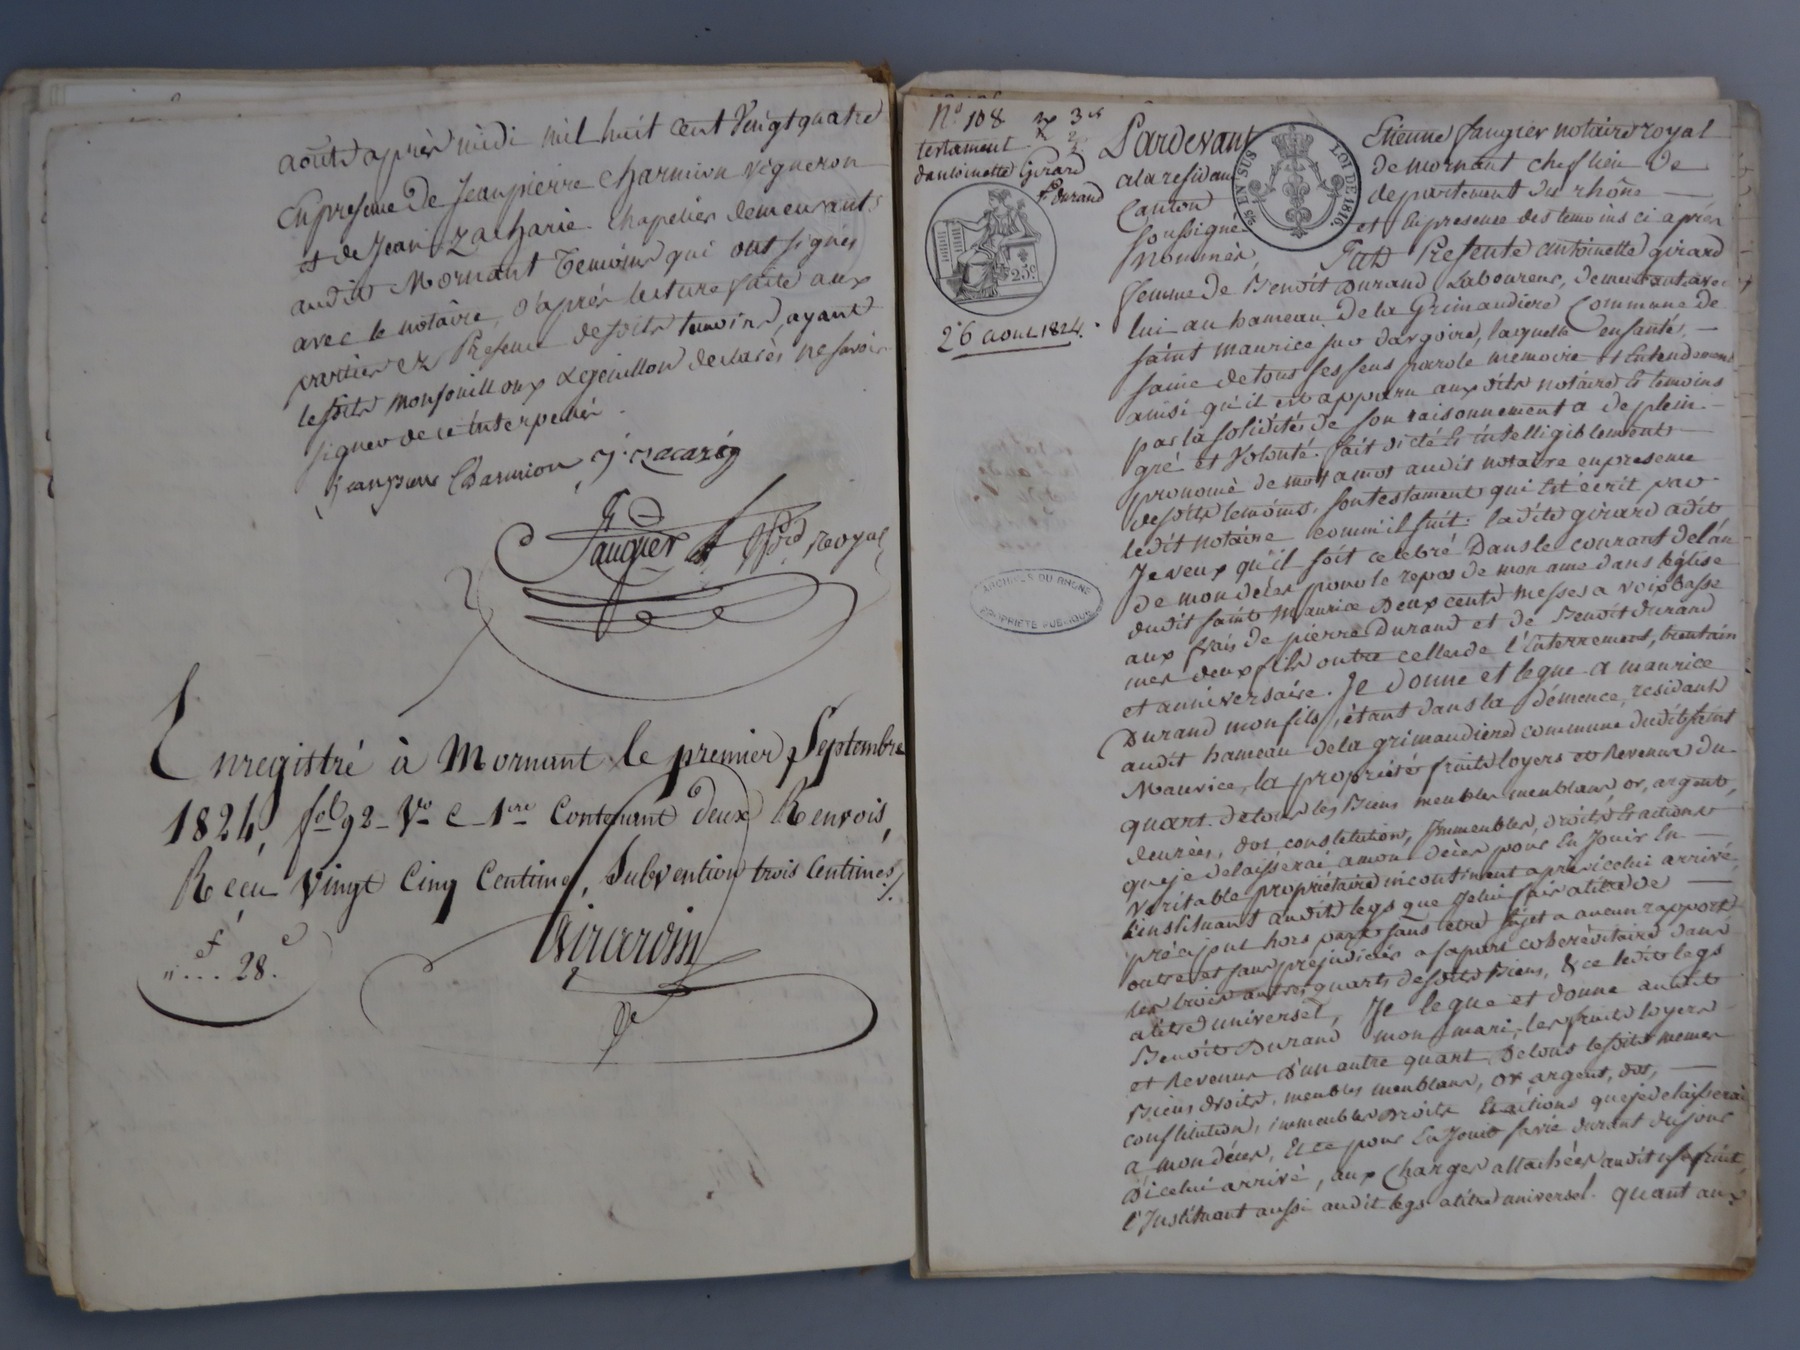 aoûts après midi mil huit cent Vingt quatre
En presence de Jean pierre Charmion vigneron
et de Jean Zacharie Chapelier demeurants
audit Mornant Temoins qui ont signés
avec le notaire, d'après lecture faite aux
parties ez Presence desdits temoins, ayant
lesdits Monfouilloux & genillon declarés ne savoir
signer de ce interpellés.
jean pierre Charmion j. zacarie
Faugier Nre Royal
Enregistré à Mornant le premier Septembre
1824, fol 92 Vo C 1ere Contenant deux Renvois,
Recu Vingt Cinq Centimes, Subvention trois Centimes
f c
" ... 28.
No 108
testament
d'antoinette Girard
fe Durand
25c
26 aout 1824.
ARCHIVES DU RHONE
PROPRIÉTÉ PUBLIQUE
Pardevant Etienne faugier notaire royal
a la residance de mornant chef lieu de
Canton departement du rhône
soussigné et en presence des temoins ci après
nommés, Fut Presente antoinette girard
EN SUS LOI DE 1816
femme de Benoît Durand Laboureur, demeurant avec
lui au hameau de la Grimaudiere Commune de
saint Maurice sur dargoire, laquelle en santé,
saine de tous ses sens parole memoire et Entendement
ainsi qu'il est apparu auxdits notaire & temoins
par la solidités de son raisonnement a de plein
gré et Volonté fait dicté & intelligiblement
prononcé de mot a mot audit notaire en presence
desdits temoins, son testament qui Est écrit par
ledit notaire comm'il suit: ladite girard a dit
Je veux qu'il soit celebré Dans le courant de l'an
de mon décès pour le repos de mon ame dans l'église
dudit saint Maurice Deux cents messes a voix basse
aux frais de pierre Durand et de Benoît durand
mes deux fils outre celles de l'Enterrement, trentain
et anniversaire. Je donne et legue a maurice
Durand mon fils, étant dans la démence, residant
audit hameau de la grimaudiere commune dudit saint
Maurice, la propriété fruits loyers et Revenus du
quart de tous les Biens meubles meublans, or, argent,
denrées, dot constitution, Immeubles, droits & actions
que je delaisserai a mon décès pour En Jouir En
veritable propriétaire incontinent après icelui arrivé,
L'instituant audit legs que Je lui fais a titre de
préciput hors part sans être sujet a aucun rapport
outre et sans préjudicier a sa part cohereditaire dans
les trois autres quarts desdits Biens, & ce ledit legs
a titre universel, Je legue et donne audit
Benoît Durand mon mari, les fruits loyers
et Revenus d'un autre quart de tous lesdits memes
Biens droits, meubles meublans, or argent, dot,
constitution, immeubles droits & actions que je delaisserai
a mon décès, Et ce pour En Jouir sa vie durant du jour
d'icelui arrivé, aux Charges attachées audit usufruit,
l'Instituant aussi audit legs a titre universel. quant aux